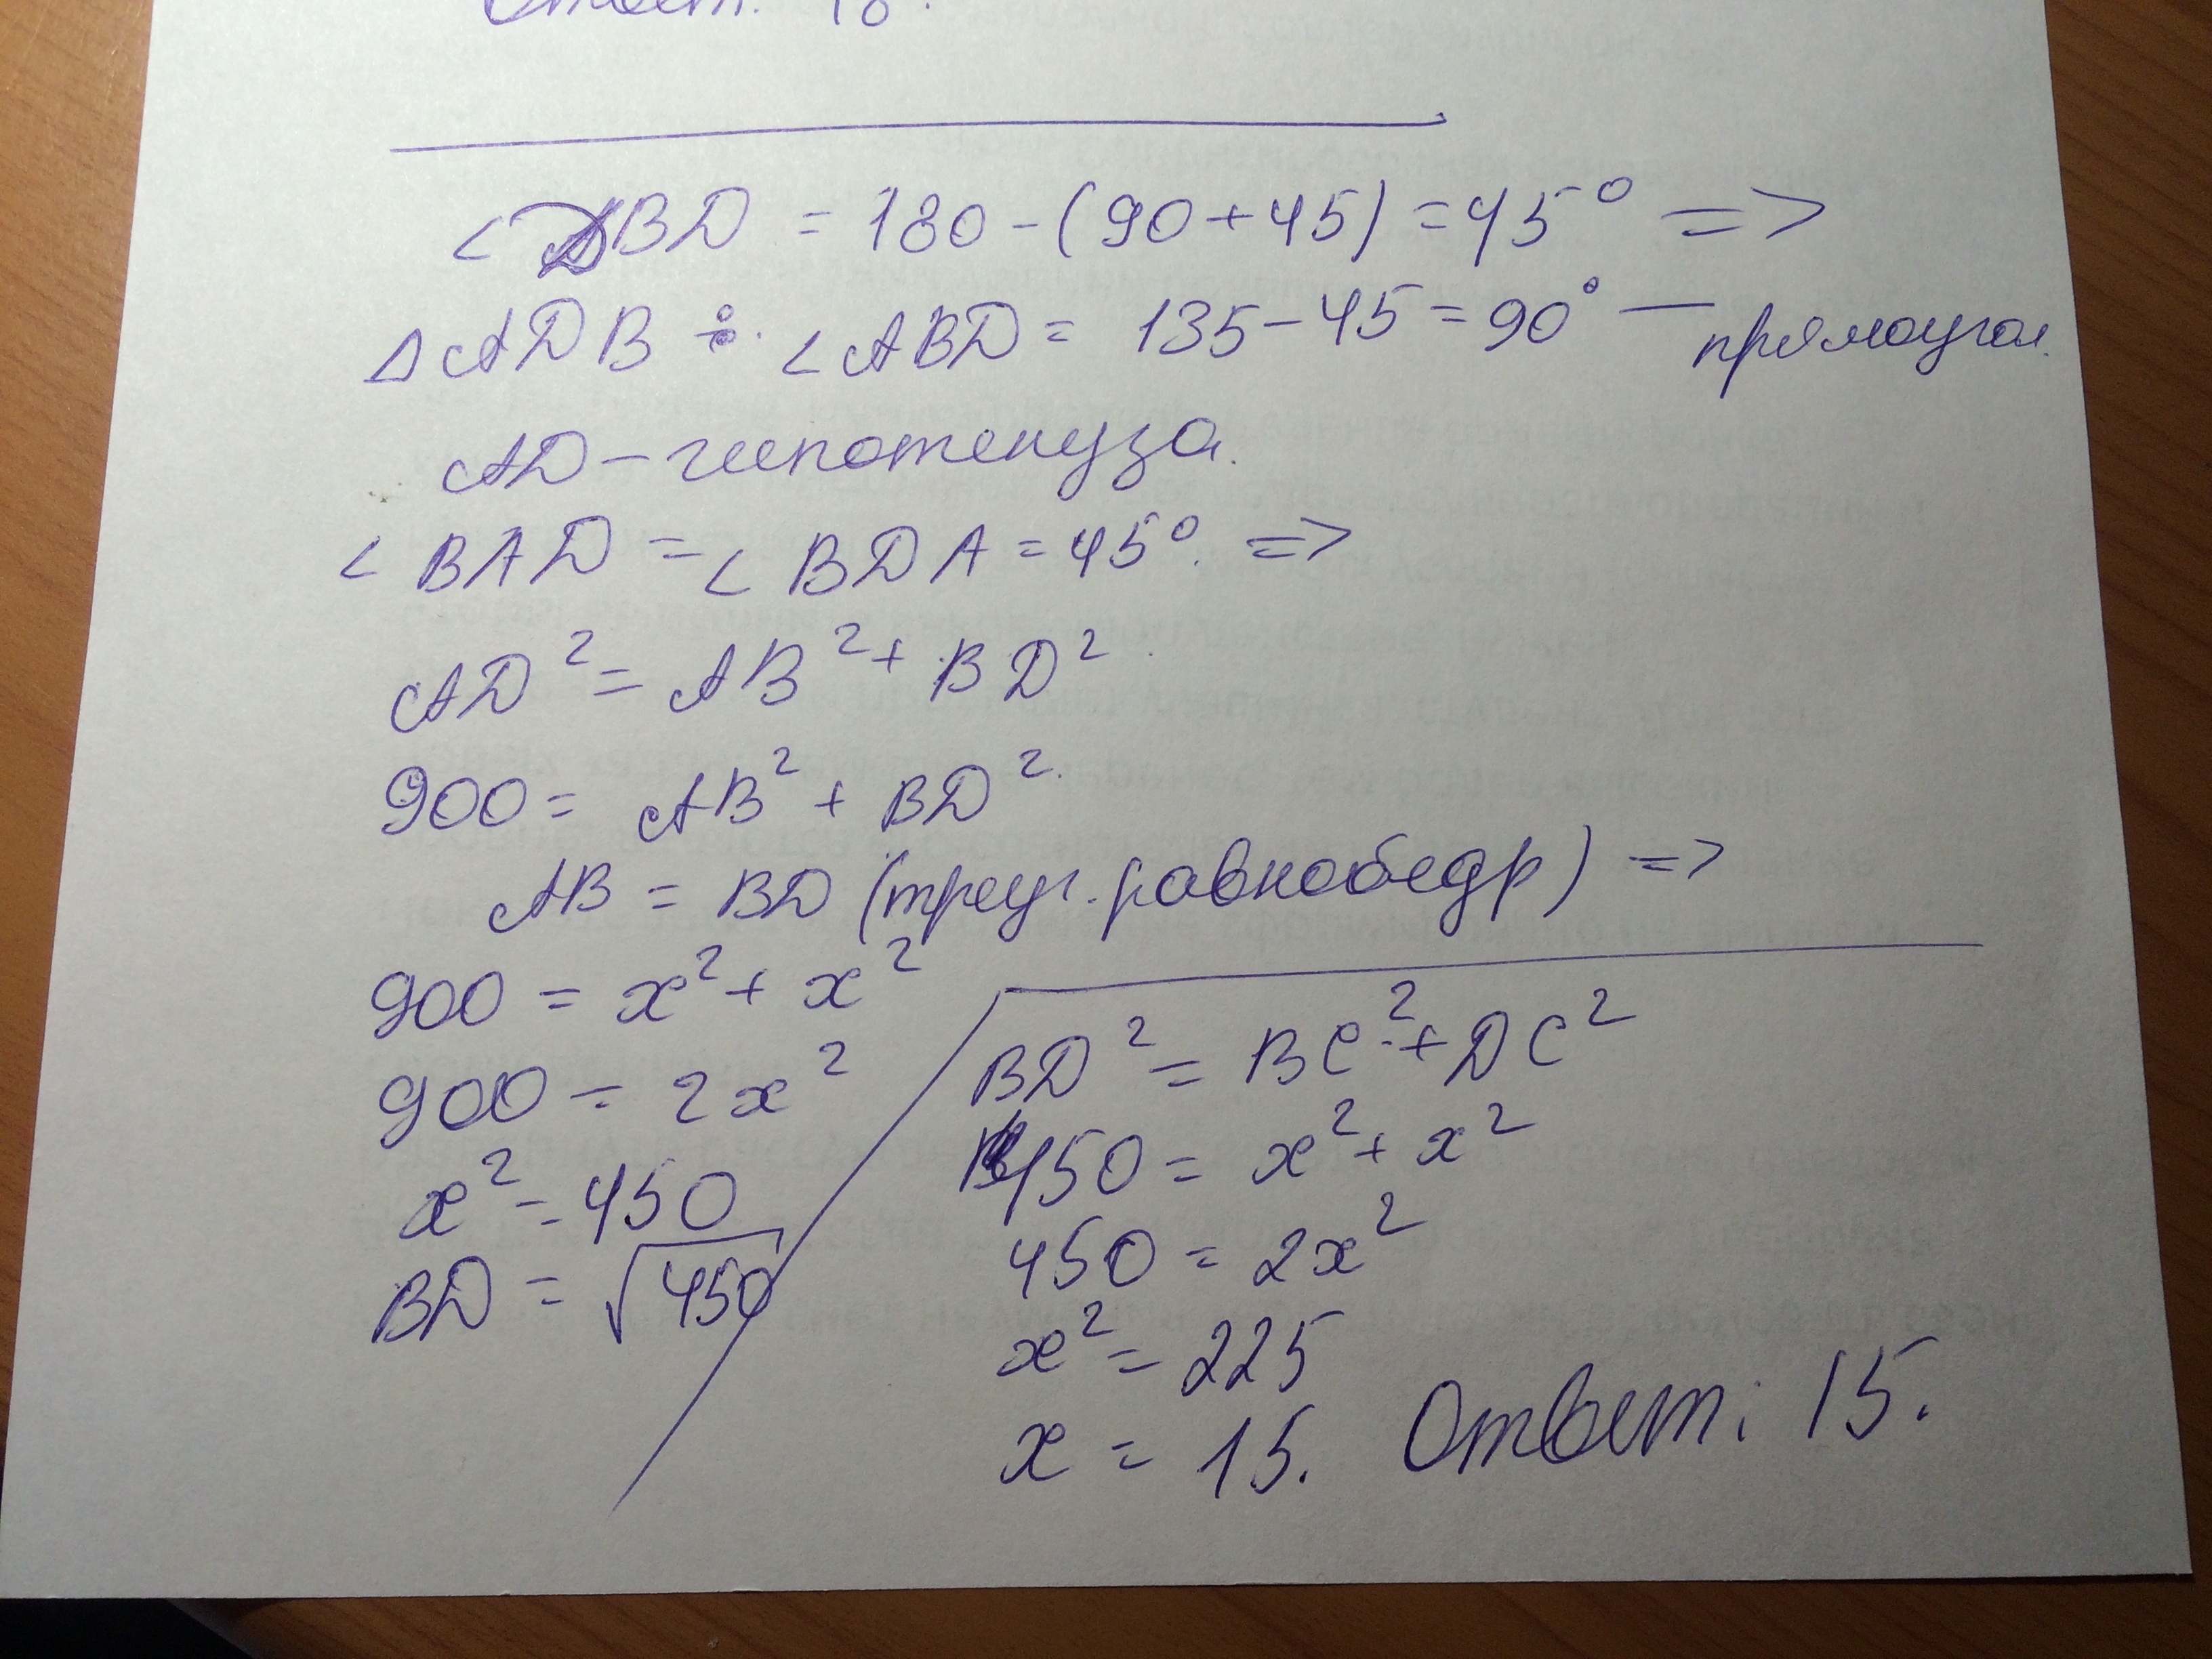 Ответ: 18.
∠DBD = 180 - (90 + 45) = 45° =>
△ADB ÷. ∠ABD = 135 - 45 = 90° — прямоугол.
AD - гипотенуза.
∠BAD = ∠BDA = 45°. =>
AD² = AB² + BD²
900 = AB² + BD².
AB = BD (треуг. равнобедр) =>
900 = x² + x²
900 = 2x²
x² = 450
BD = √450
BD² = BC² + DC²
450 = x² + x²
450 = 2x²
x² = 225
x = 15. Ответ: 15.